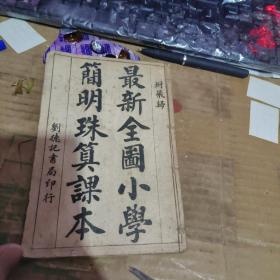 附飛歸
最新全圖小學
簡明珠算課本
劉德記書局印行